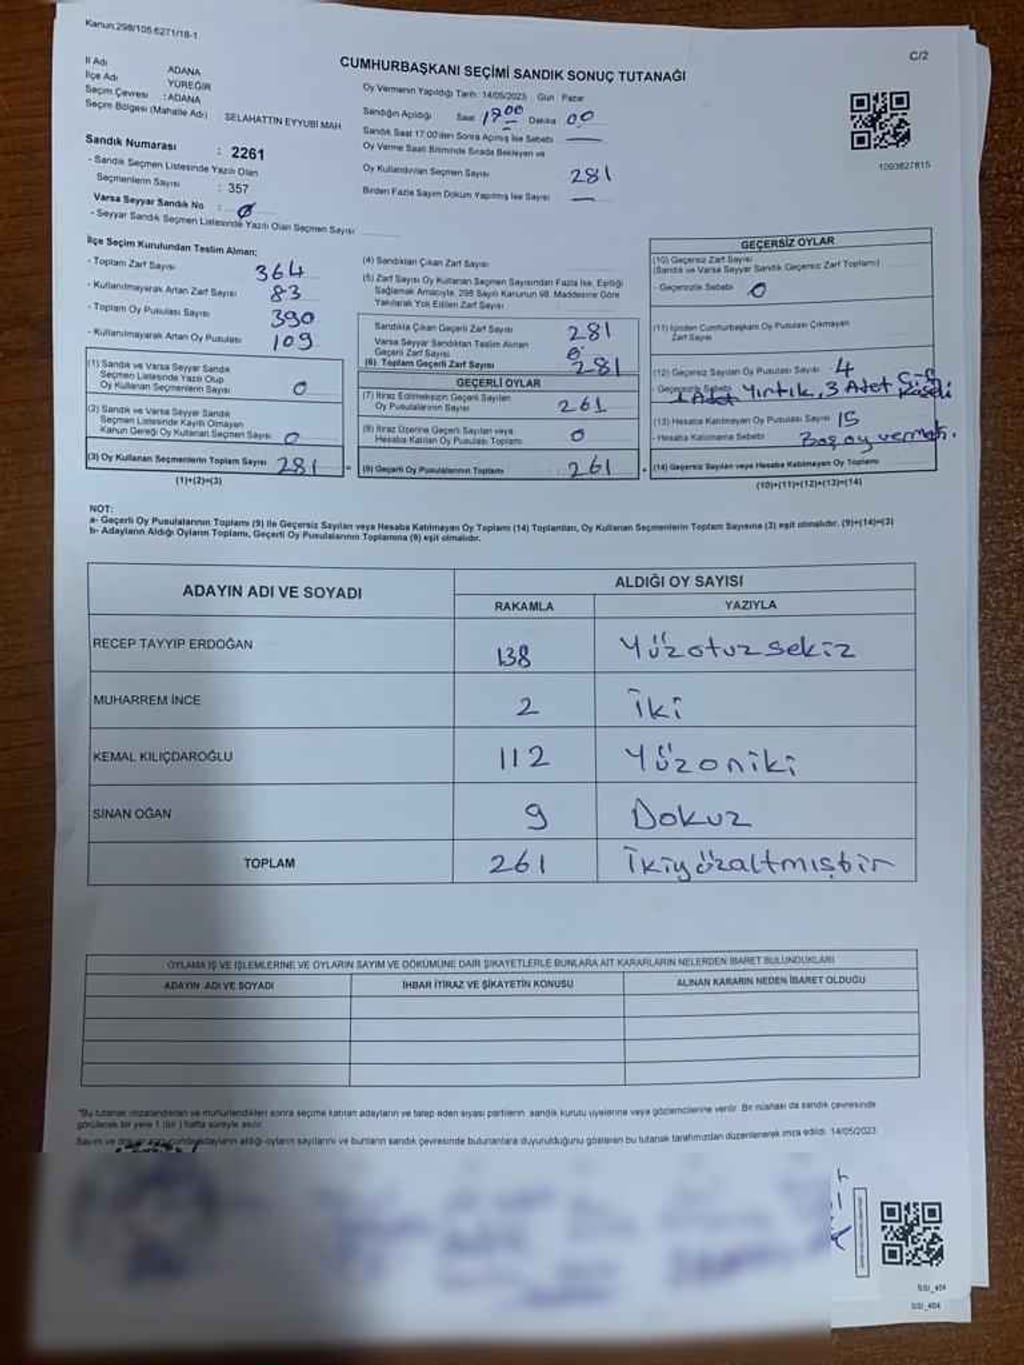 Kanun:298/105.6271/18-1
C/2
CUMHURBAŞKANI SEÇİMİ SANDIK SONUÇ TUTANAĞI
İl Adı ADANA
İlçe Adı YÜREĞİR
Seçim Çevresi : ADANA
Seçim Bölgesi (Mahalle Adı) SELAHATTİN EYYUBİ MAH
Oy Vermenin Yapıldığı Tarih: 14/05/2023 Gün: Pazar
Sandığın Açıldığı Saat 17 00 Dakika 00
Sandık Saat 17:00'den Sonra Açılmış İse Sebebi
Oy Verme Saati Bitiminde Sırada Bekleyen ve
Oy Kullandırılan Seçmen Sayısı 281
Birden Fazla Sayım Döküm Yapılmış İse Sayısı —
Sandık Numarası : 2261
- Sandık Seçmen Listesinde Yazılı Olan
Seçmenlerin Sayısı : 357
Varsa Seyyar Sandık No : 0
- Seyyar Sandık Seçmen Listesinde Yazılı Olan Seçmen Sayısı
İlçe Seçim Kurulundan Teslim Alınan;
- Toplam Zarf Sayısı 364
- Kullanılmayarak Artan Zarf Sayısı 83
- Toplam Oy Pusulası Sayısı 390
- Kullanılmayarak Artan Oy Pusulası 109
(1) Sandık ve Varsa Seyyar Sandık
Seçmen Listesinde Yazılı Olup
Oy Kullanan Seçmenlerin Sayısı 0
(2) Sandık ve Varsa Seyyar Sandık
Seçmen Listesinde Kayıtlı Olmayan
Kanun Gereği Oy Kullanan Seçmen Sayısı 0
(3) Oy Kullanan Seçmenlerin Toplam Sayısı 281
(1)+(2)=(3)
(4) Sandıktan Çıkan Zarf Sayısı
(5) Zarf Sayısı Oy Kullanan Seçmen Sayısından Fazla İse, Eşitliği
Sağlamak Amacıyla, 298 Sayılı Kanunun 98. Maddesine Göre
Yakılarak Yok Edilen Zarf Sayısı
Sandıkta Çıkan Geçerli Zarf Sayısı 281
Varsa Seyyar Sandıktan Teslim Alınan
Geçerli Zarf Sayısı 0
(6) Toplam Geçerli Zarf Sayısı 281
GEÇERLİ OYLAR
(7) İtiraz Edilmeksizin Geçerli Sayılan
Oy Pusulalarının Sayısı 261
(8) İtiraz Üzerine Geçerli Sayılan veya
Hesaba Katılan Oy Pusulası Toplamı 0
(9) Geçerli Oy Pusulalarının Toplamı 261
GEÇERSİZ OYLAR
(10) Geçersiz Zarf Sayısı
(Sandık ve Varsa Seyyar Sandık Geçersiz Zarf Toplamı)
- Geçersizlik Sebebi 0
(11) İçinden Cumhurbaşkanı Oy Pusulası Çıkmayan
Zarf Sayısı
(12) Geçersiz Sayılan Oy Pusulası Sayısı 4
- Geçersizlik Sebebi 1 Adet Yırtık, 3 Adet
(13) Hesaba Katılmayan Oy Pusulası Sayısı 15
- Hesaba Katılmama Sebebi Boş oy vermek.
(14) Geçersiz Sayılan veya Hesaba Katılmayan Oy Toplamı
(10)+(11)+(12)+(13)=(14)
1093627815
NOT:
a- Geçerli Oy Pusulalarının Toplamı (9) ile Geçersiz Sayılan veya Hesaba Katılmayan Oy Toplamı (14) Toplamları, Oy Kullanan Seçmenlerin Toplam Sayısına (3) eşit olmalıdır. (9)+(14)=(3)
b- Adayların Aldığı Oyların Toplamı, Geçerli Oy Pusulalarının Toplamına (9) eşit olmalıdır.
ADAYIN ADI VE SOYADI
ALDIĞI OY SAYISI
RAKAMLA YAZIYLA
RECEP TAYYİP ERDOĞAN 138 Yüzotuzsekiz
MUHARREM İNCE 2 İki
KEMAL KILIÇDAROĞLU 112 Yüzoniki
SİNAN OĞAN 9 Dokuz
TOPLAM 261 İkiyüzaltmışbir
OYLAMA İŞ VE İŞLEMLERİNE VE OYLARIN SAYIM VE DÖKÜMÜNE DAİR ŞİKAYETLERLE BUNLARA AİT KARARLARIN NELERDEN İBARET BULUNDUKLARI
ADAYIN ADI VE SOYADI İHBAR İTİRAZ VE ŞİKAYETİN KONUSU ALINAN KARARIN NEDEN İBARET OLDUĞU
"Bu tutanak imzalandıktan ve mühürlendikten sonra seçime katılan adayların ve talep eden siyasi partilerin sandık kurulu üyelerine veya gözlemcilerine verilir. Bir nüshası da sandık çevresinde
görülecek bir yere 1 (bir) hafta süreyle asılır.
adayların aldığı oyların sayılarını ve bunların sandık çevresinde bulunanlara duyurulduğunu gösteren bu tutanak tarafımızdan düzenlenerek imza edildi. 14/05/2023
SSI_404
SSI_404